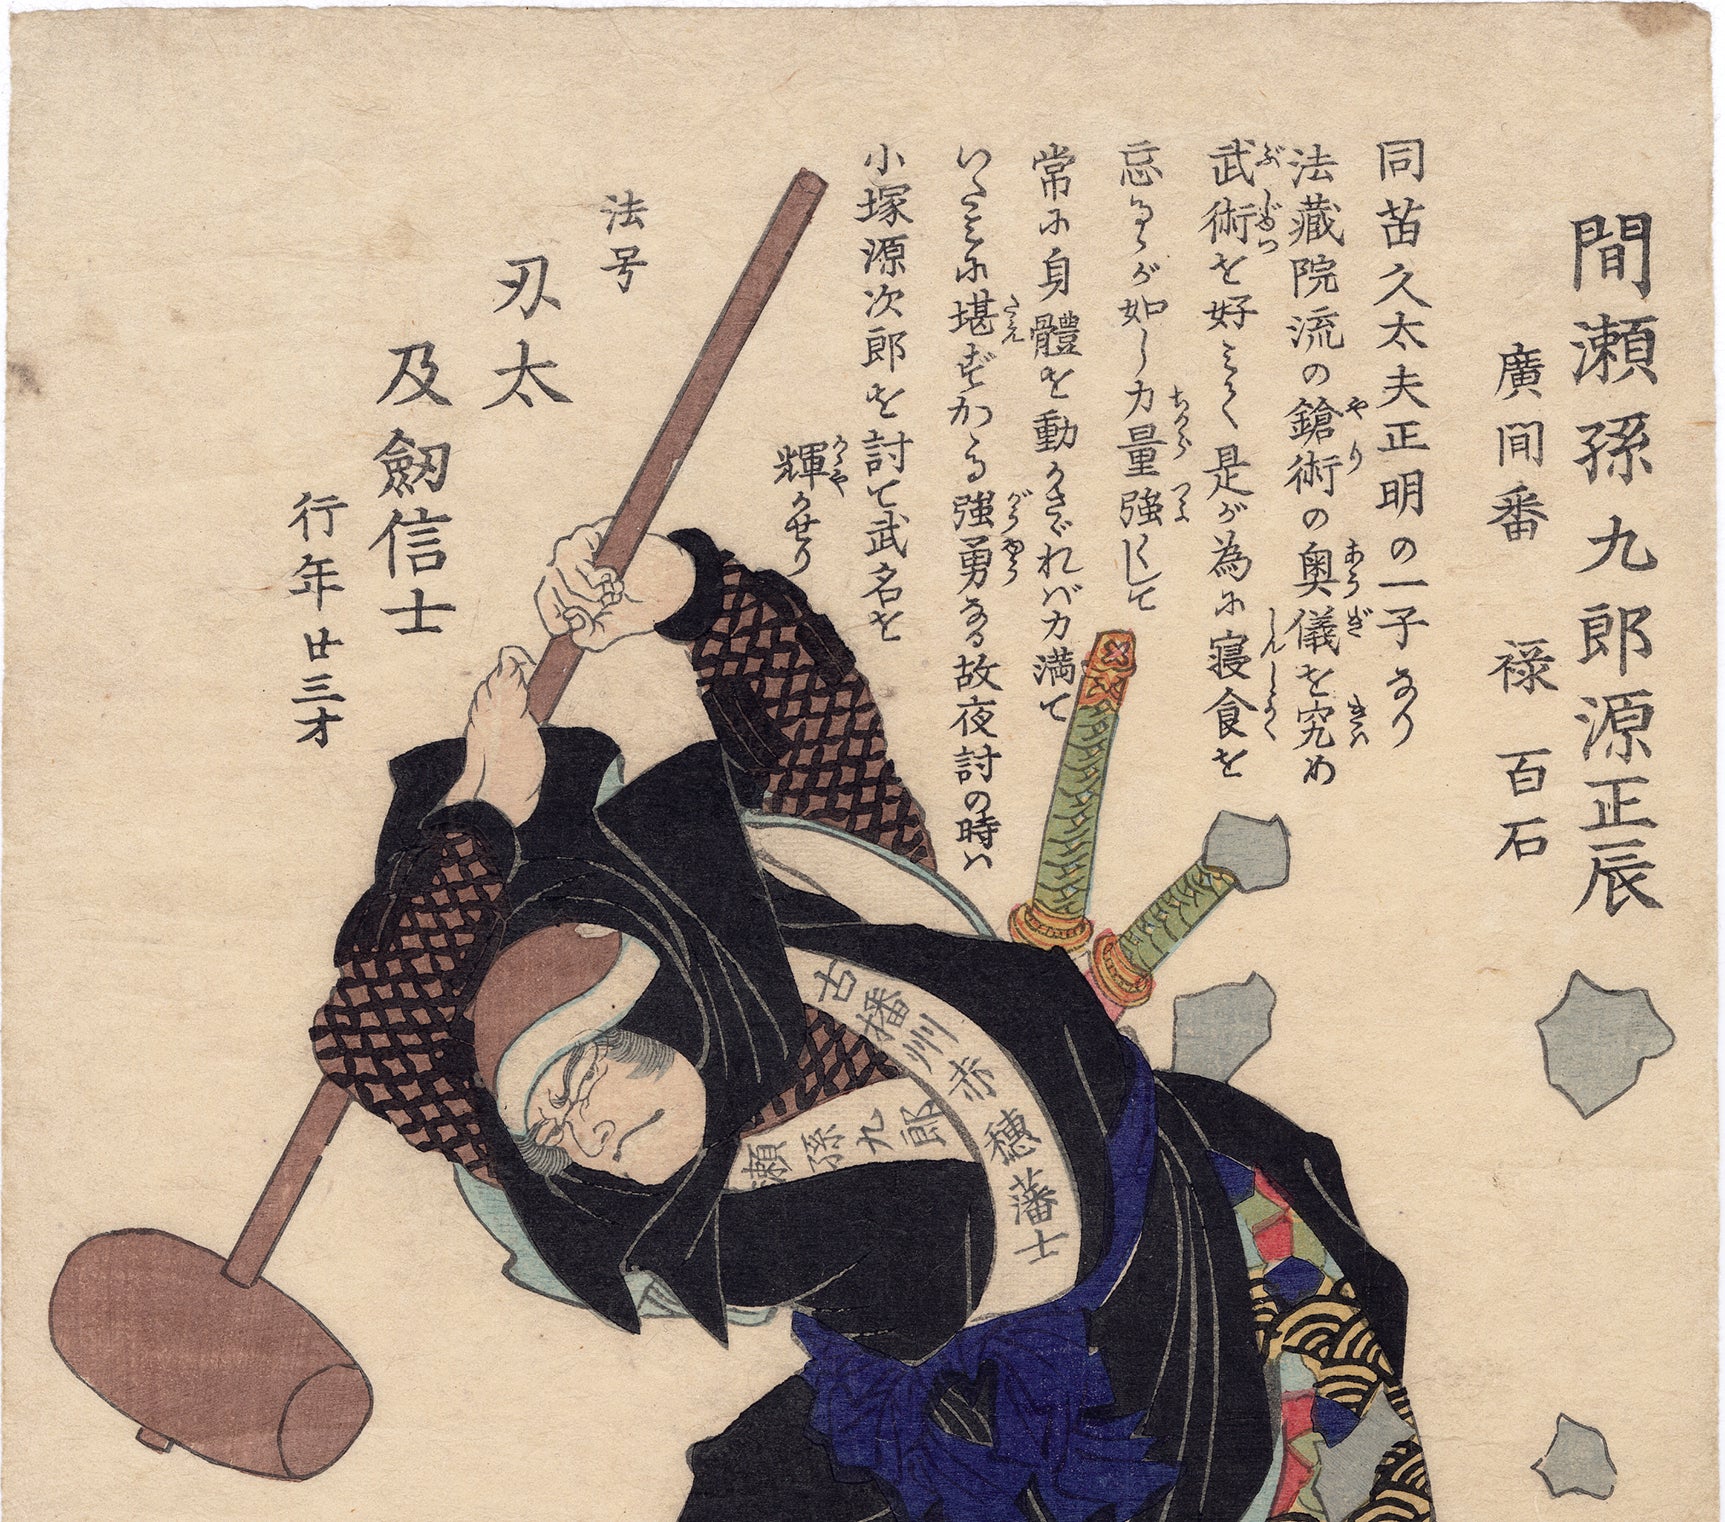 間瀬孫九郎源正辰
廣間番　禄　百石
同苗久太夫正明の一子なり
法藏院流の鎗術の奥儀を究め
武術を好みて是が為に寝食を
忘るゝが如し力量強くして
常に身體を動かさゞれバ力満て
いたミに堪ずかゝる強勇なる故夜討の時ハ
小塚源次郎を討て武名を
輝かせり
法号
刃太
及劔信士
行年廿三才
古播州赤穂藩士
瀬孫九郎